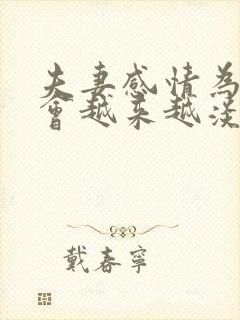 夫妻感情為
會越來越淡
戴春寧